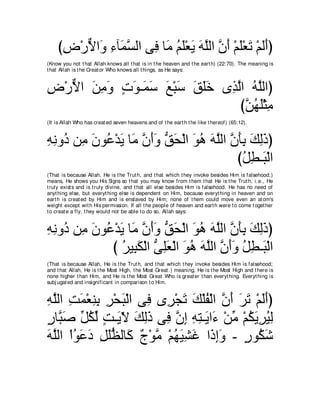 (أَلَمْ تَعْلَمْ أَنَّ اللَّهَ يَعْلَمُ مَا فِى السَّمَآءِ وَالاٌّرْضِ)
(Know you not that Allah knows all that is in the heaven and the earth) (22:70). The meaning is
that Allah is the Creator Who knows all things, as He says:
(اللَّهُ الَّذِى خَلَقَ سَبْعَ سَمَـوَتٍ وَمِنَ الاٌّرْضِ
مِثْلَهُنَّ)
(It is Allah Who has created seven heavens and of the earth the like thereof) (65:12).
(ذَلِكَ بِأَنَّ اللَّهَ هُوَ الْحَقُّ وَأَنَّ مَا يَدْعُونَ مِن دُونِهِ
الْبَـطِلُ)
(That is because Allah, He is the Truth, and that which they invoke besides Him is falsehood;)
means, He shows you His Signs so that you may know from them that He is the Truth, i.e., He
truly exists and is truly divine, and that all else besides Him is falsehood. He has no need of
anything else, but everything else is dependent on Him, because everything in heaven and on
earth is created by Him and is enslaved by Him; none of them could move even an atom's
weight except with His permission. If all the people of heaven and earth were to come together
to create a fly, they would not be able to do so. Allah says:
(ذَلِكَ بِأَنَّ اللَّهَ هُوَ الْحَقُّ وَأَنَّ مَا يَدْعُونَ مِن دُونِهِ
الْبَـطِلُ وَأَنَّ اللَّهَ هُوَ الْعَلِىُّ الْكَبِيرُ )
(That is because Allah, He is the Truth, and that which they invoke besides Him is falsehood;
and that Allah, He is the Most High, the Most Great.) meaning, He is the Most High and there is
none higher than Him, and He is the Most Great Who is greater than everything. Everything is
subjugated and insignificant in comparison to Him.
(أَلَمْ تَرَ أَنَّ الْفُلْكَ تَجْرِى فِى الْبَحْرِ بِنِعْمَتِ اللَّهِ
لِيُرِيَكُمْ مِّنْ ءَايَـتِهِ إِنَّ فِى ذَلِكَ لاّيَـتٍ لِّكُلِّ صَبَّارٍ
شَكُورٍ - وَإِذَا غَشِيَهُمْ مَّوْجٌ كَالظُّلَلِ دَعَوُاْ اللَّهَ